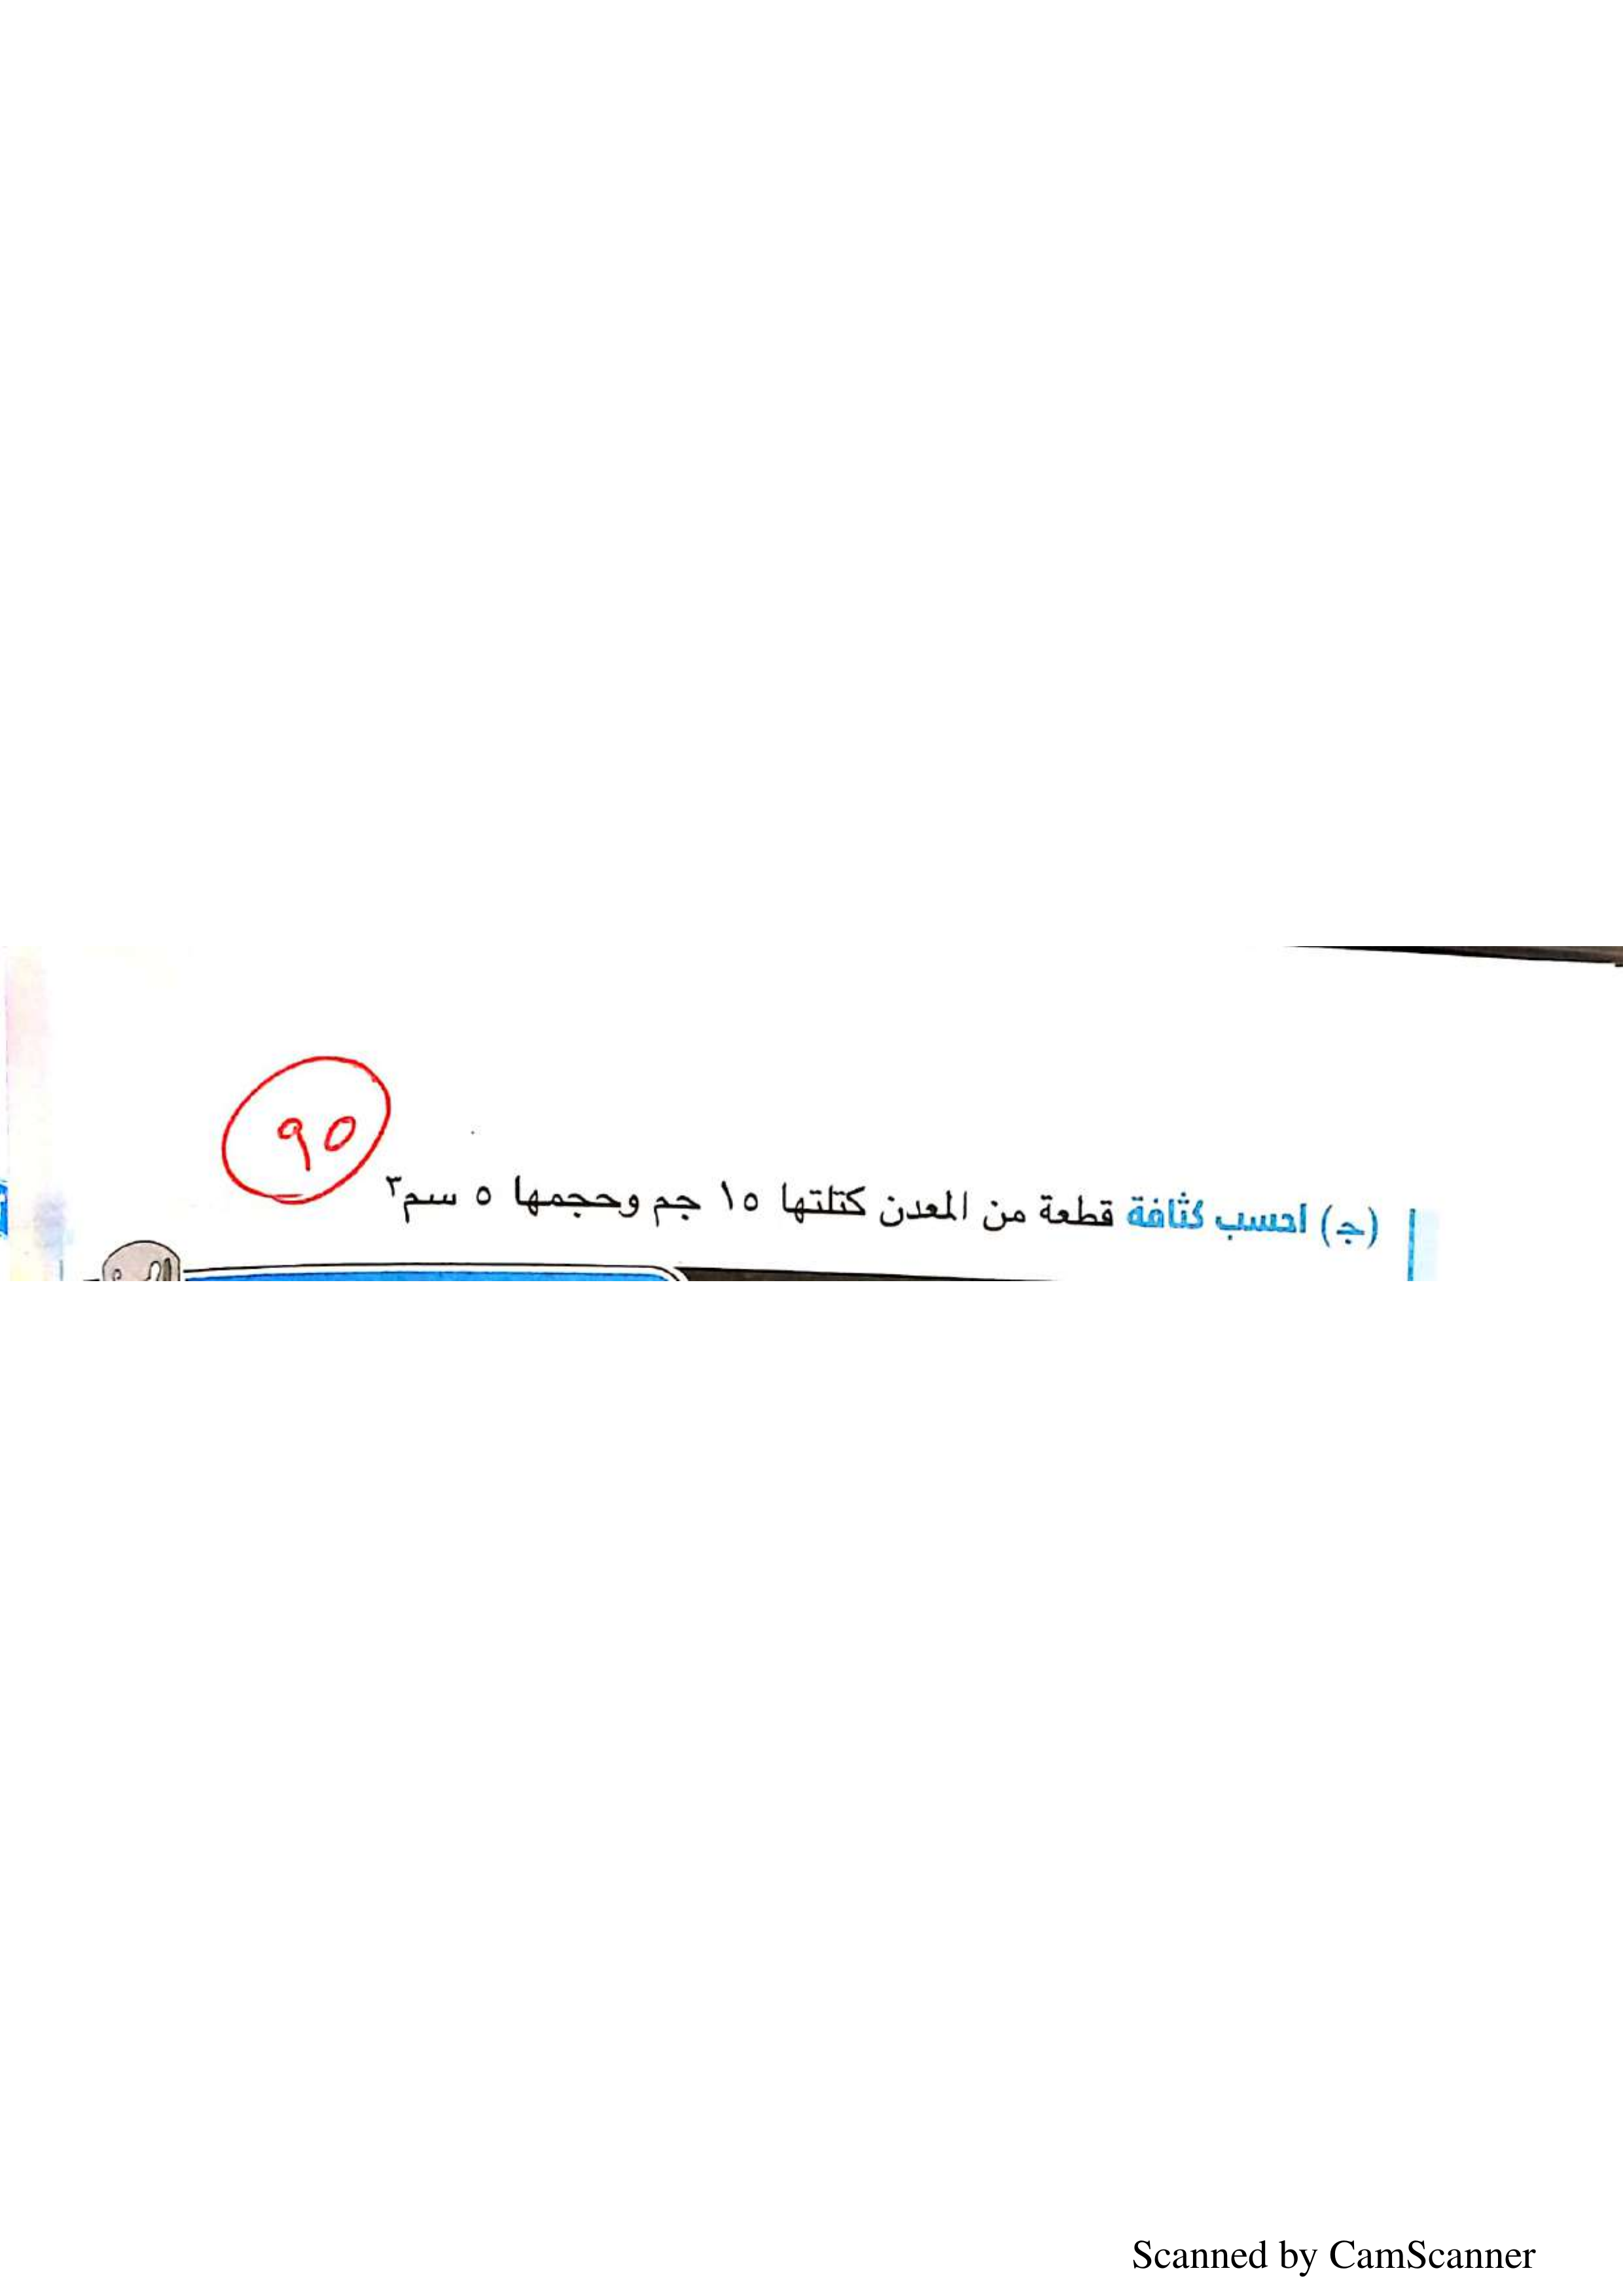 ٩٥
(جـ) احسب كثافة قطعة من المعدن كتلتها ١٥ جم وحجمها ٥ سم٣
Scanned by CamScanner